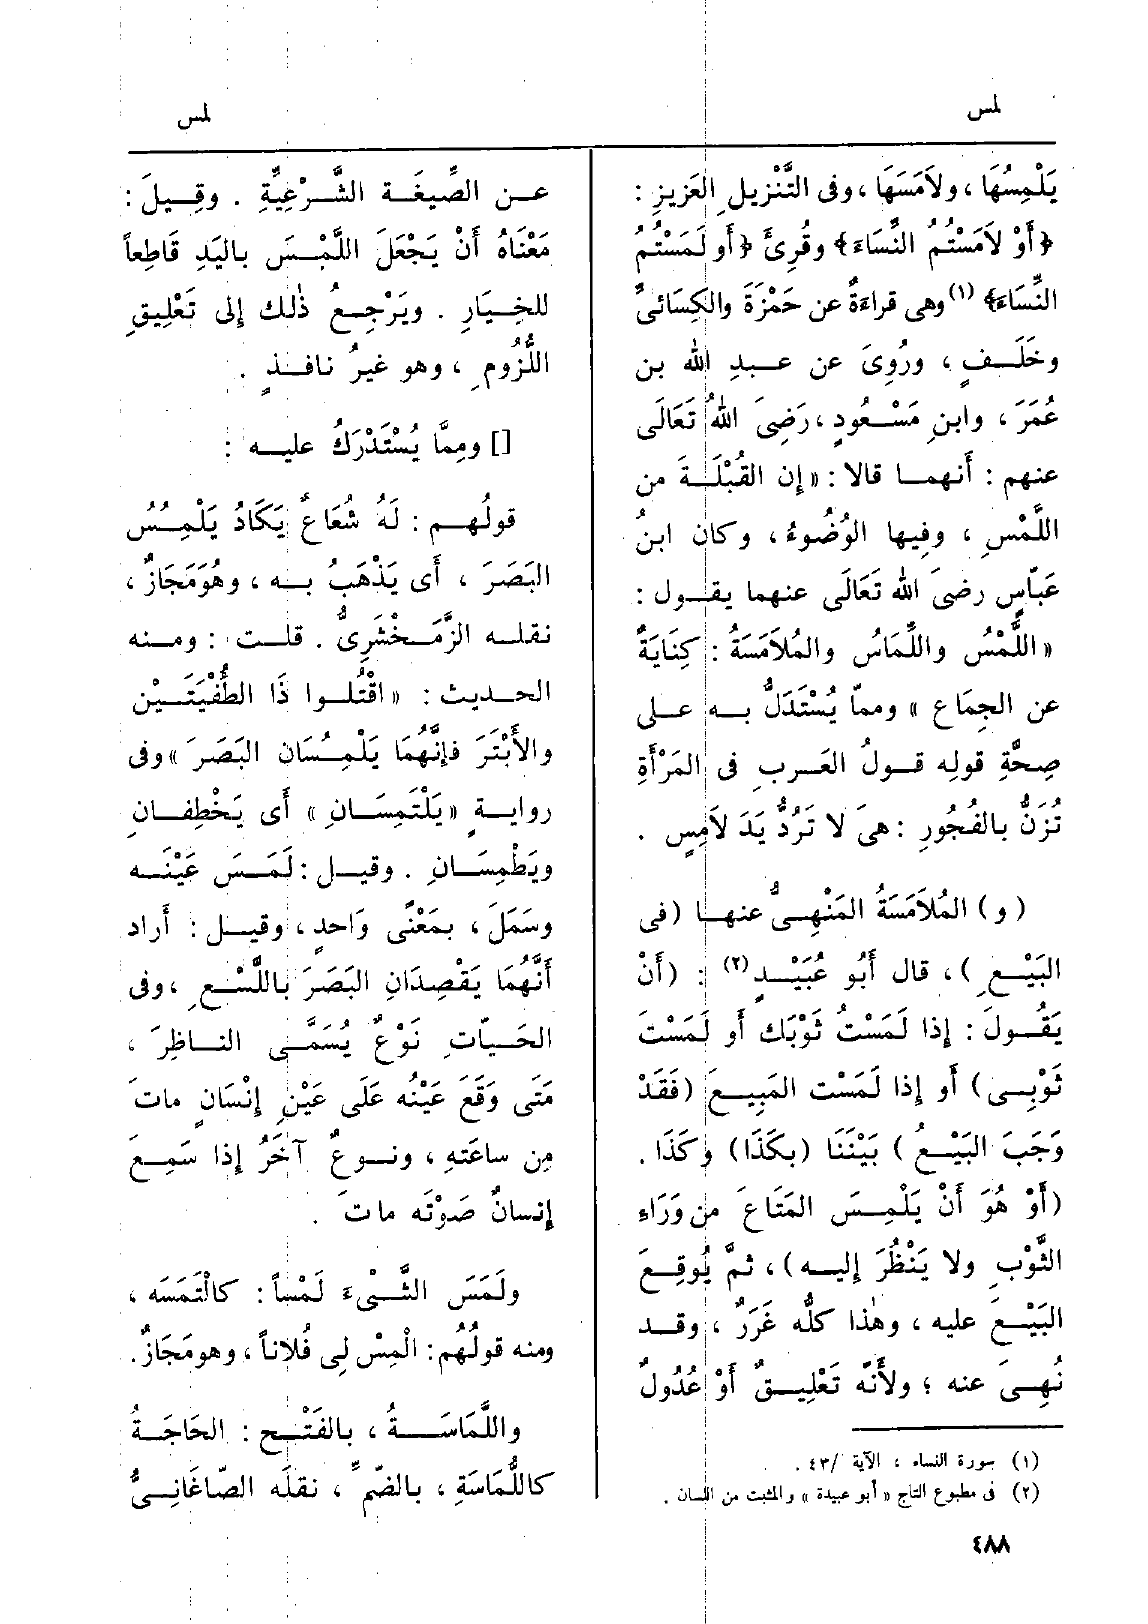 لمس
لمس
يَلْمِسُهَا ، ولَامَسَهَا ، وفى التَّنْزِيلِ العَزِيزِ :
﴿أَوْ لَامَسْتُمُ النِّسَاءَ﴾ وقُرِئَ ﴿أَو لَمَسْتُمُ
النِّسَاءَ﴾ (١) وهى قراءَةٌ عن حَمْزَةَ والكِسَائىِّ
وخَلَـفٍ ، ورُوِىَ عن عـبدِ الله بن
عُمَرَ ، وابنِ مَسْعُودٍ ، رَضِىَ اللهُ تَعَالَى
عنهم : أَنهمـا قالا : « إِن القُبْلَـةَ من
اللَّمْسِ ، وفيها الوُضُوءُ ، وكان ابنُ
عَبّاسٍ رضىَ الله تَعَالَى عنهما يقـول :
« اللَّمْسُ واللِّمَاسُ والمُلَامَسَةُ : كِنَايَةٌ
عن الجِمَاع » ومماّ يُسْتَدَلُّ بـه علـى
صِحَّةِ قولِه قـولُ العَـربِ فى المَرْأَةِ
تُزَنُّ بالفُجُورِ : هىَ لا تَرُدُّ يَدَ لَامِسٍ .
( و ) المُلَامَسَةُ المَنْهِـىُّ عنهـا ( فى
البَيْـعِ ) ، قال أَبُو عُبَيْـدٍ (٢) : ( أَنْ
يَقُولَ : إِذا لَمَسْتُ ثَوْبَك أَو لَمَسْتَ
ثَوْبِـى ) أَو إِذا لَمَسْت المَبِيـعَ ( فَقَدْ
وَجَبَ البَيْـعُ ) بَيْنَنَا ( بِكَذَا ) وكَذَا .
( أَوْ هُوَ أَنْ يَلْمِـسَ المَتَاعَ من وَرَاءِ
الثَّوْبِ ولا يَنْظُرَ إِليـه ) ، ثمَّ يُوقِـعَ
البَيْـعَ عليه ، وهٰذا كلُّه غَرَرٌ ، وقـد
نُهِـىَ عنه ؛ ولأَنَّه تَعْلِيـقٌ أَوْ عُدُولٌ
(١) سورة النساء ، الآية /٤٣ .
(٢) فى مطبوع التاج « أبو عبيدة » والمثبت من اللسان .
عـن الصِّيغَـة الشَّرْعِيَّةِ . وقِيـلَ :
مَعْنَاهُ أَنْ يَجْعَلَ اللَّمْـسَ باليَدِ قَاطِعاً
للخِـيَارِ . ويَرْجِـعُ ذٰلك إِلى تَعْلِيـقِ
اللُّزُومِ ، وهو غيرُ نافـذٍ .
[] ومِمَّا يُسْتَدْرَكُ عليـه :
قولُهـم : لَهُ شُعَاعٌ يَكَادُ يَلْمِـسُ
البَصَرَ ، أَى يَذْهَبُ بـه ، وهُوَ مَجَازٌ ،
نقلـه الزَّمَـخْشَرِىُّ . قلـت : ومـنه
الحـديث : « اقْتُلوا ذَا الطُّفْيَتَـيْن
والأَبْتَرَ فإِنَّهُمَا يَلْمِـسَان البَصَرَ » وفى
روايـةٍ « يَلْتَمِسَـانِ » أَى يَخْطِفـانِ
ويَطْمِسَـانِ . وقيـل : لَمَـسَ عَيْنَـه
وسَمَلَ ، بمَعْنًى وَاحدٍ ، وقيـل : أَراد
أَنَّهُمَا يَقْصِدَانِ البَصَرَ باللَّسْـعِ ، وفى
الحَـيّاتِ نَوْعٌ يُسَمَّـى النـاظِرَ ،
مَتَى وَقَعَ عَيْنُه عَلَى عَيْنِ إِنْسَانٍ ماتَ
مِن ساعَتهِ ، ونـوعٌ آخَرُ إِذا سَمِـعَ
إِنسانٌ صَوْتَه ماتَ .
ولَمَسَ الشَّىْءَ لَمْساً : كالْتَمَسَه ،
ومنه قولُهُم : الْمِسْ لِى فُلاناً ، وهو مَجَازٌ .
واللَّمَاسَـةُ ، بالفَتْـح : الحَاجَـةُ
كاللُّمَاسَةِ ، بالضّمِّ ، نقلَه الصّاغَانِـىُّ
٤٨٨